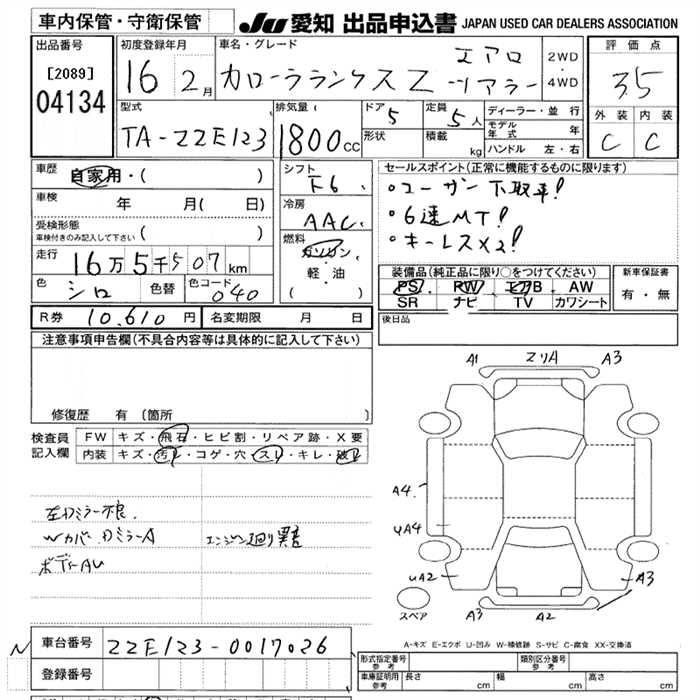 車内保管・守衛保管
JU 愛知 出品申込書 JAPAN USED CAR DEALERS ASSOCIATION
出品番号
[2089]
04134
初度登録年月
16年 2月
車名・グレード
カローラランクス Z エアロ ツアラー
2WD・4WD
評価点
3.5
外装 内装
C C
型式
TA-ZZE123
排気量
1800cc
ドア 5
形状
定員 5人
積載 kg
ディーラー・並行
モデル年式 年
ハンドル 左・右
車歴
自家用・( )
車検
年 月( 日)
受検形態
車検付きのみ記入して下さい ( )
走行
16万5千507km
色 シロ 色替 色コード 040
シフト
F6
冷房
AAC
燃料
ガソリン
軽・油
( )
セールスポイント(正常に機能するものに限ります)
・ユーザー下取車!
・6速MT!
・キーレス×2!
装備品(純正品に限り○をつけてください)
PS PW エアB AW
SR ナビ TV カワシート
新車保証書
有・無
R券 10,610円 名変期限 月 日
後日品
注意事項申告欄(不具合内容等は具体的に記入して下さい)
修復歴 有(箇所
検査員記入欄
FW キズ・飛石・ヒビ割・リペア跡・X要
内装 キズ・汚レ・コゲ・穴・スレ・キレ・破レ
左Dミラー不良
Wカバー Dミラー A
エンジン廻り異音
ボデーAU
A1 エクリA A3
A4
UA4
UA2 A3
スペア A3 A2
A-キズ E-エクボ U-凹み W-補修跡 S-サビ C-腐食 XX-交換済
N 車台番号 ZZE123-0017026
登録番号
形式指定番号 参考
類別区分番号 参考
車庫証明用 参考 長さ cm 幅 cm 高さ cm